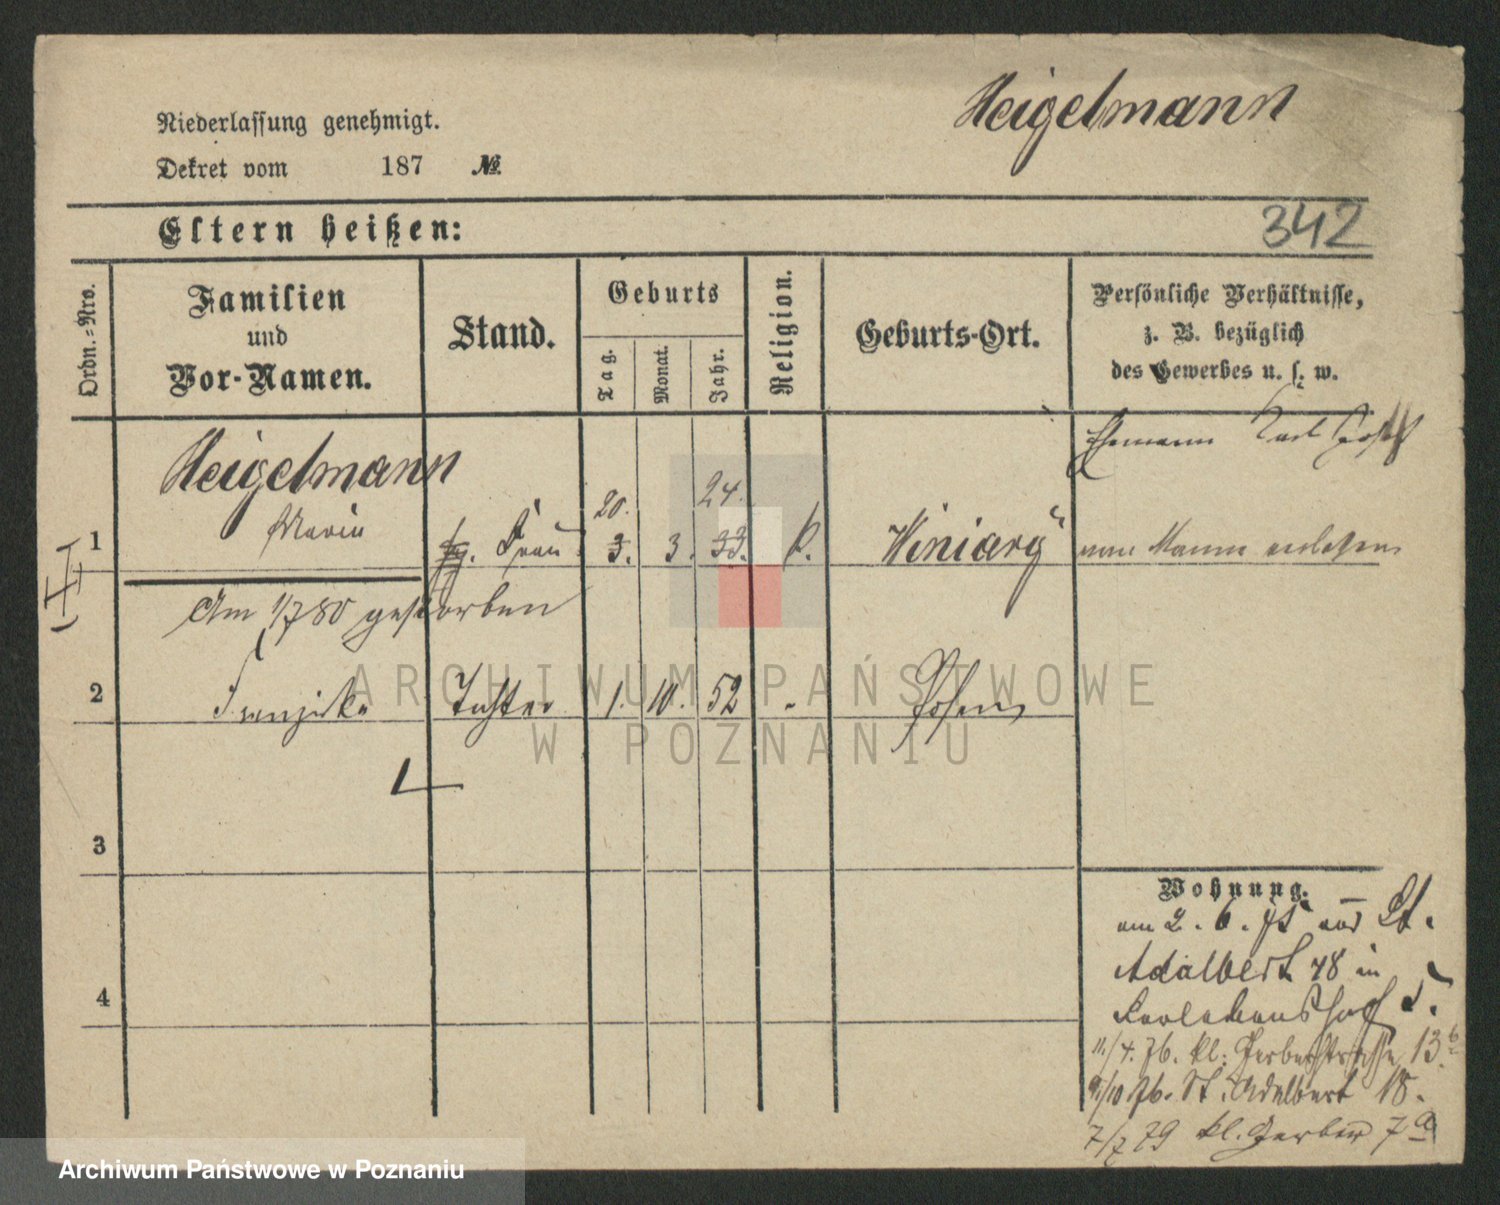 Heigelmann
Niederlassung genehmigt.
Dekret vom 187 №
Eltern heißen:
342
Ordn.=Nro.
Familien
und
Vor-Namen.
Stand.
Geburts
Tag.
Monat.
Jahr.
Religion.
Geburts-Ort.
Persönliche Verhältnisse,
z. B. bezüglich
des Gewerbes u. s. w.
Ehemann Karl
Heigelmann
20. 24.
1 Maria Frau 3. 3. 33. k. Winiary vom Manne verlassen
Am 1/7 80 gestorben
2 Franziska Tochter 1. 10. 52 Posen
3
4
Wohnung.
am 2. 6. 75 aus St.
Adalbert 48 in
5.
11./4. 76. kl. Gerberstrasse 13 b
9/10 76. St. Adalbert 18.
7/7 79 kl. Gerber 7 a
ARCHIWUM PAŃSTWOWE
W POZNANIU
Archiwum Państwowe w Poznaniu